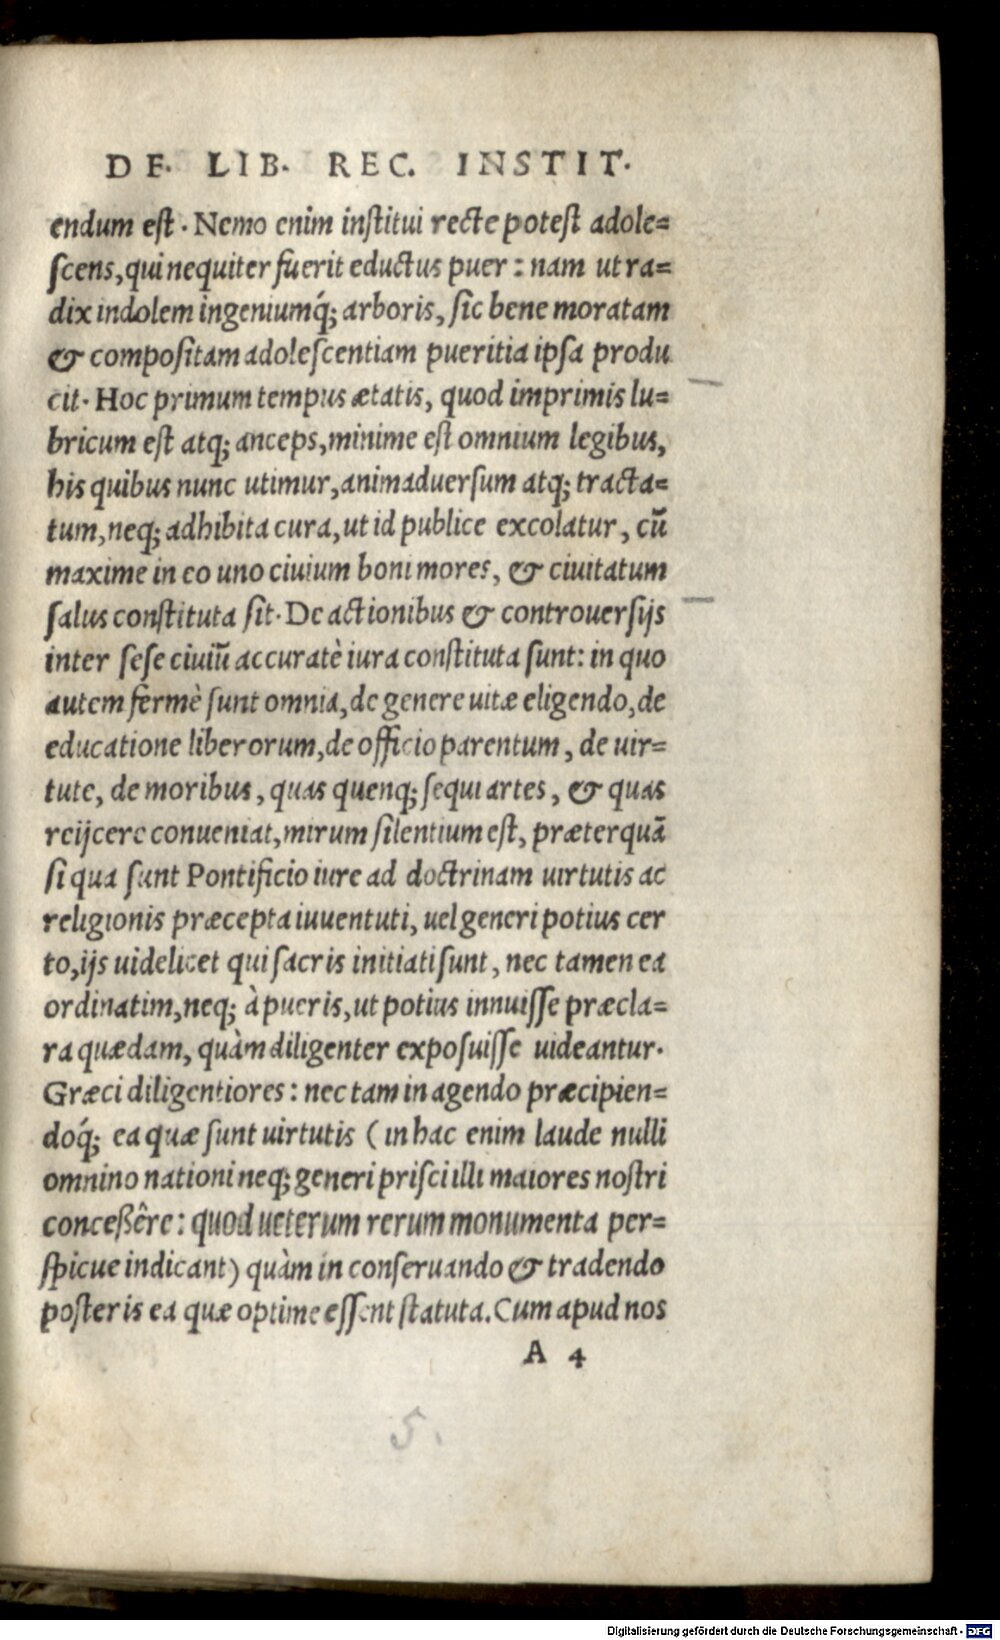 DE. LIB. REC. INSTIT.
endum est. Nemo enim institui recte potest adole=
scens, qui nequiter fuerit eductus puer: nam ut ra=
dix indolem ingeniumq́; arboris, sic bene moratam
& compositam adolescentiam pueritia ipsa produ
cit. Hoc primum tempus ætatis, quod imprimis lu=
bricum est atq; anceps, minime est omnium legibus,
his quibus nunc utimur, animaduersum atq; tracta=
tum, neq; adhibita cura, ut id publice excolatur, cū
maxime in eo uno ciuium boni mores, & ciuitatum
salus constituta sit. De actionibus & controuersijs
inter sese ciuiū accuratè iura constituta sunt: in quo
autem fermè sunt omnia, de genere uitæ eligendo, de
educatione liberorum, de officio parentum, de uir=
tute, de moribus, quas quenq; sequi artes, & quas
reijcere conueniat, mirum silentium est, præterquā
si qua sunt Pontificio iure ad doctrinam uirtutis ac
religionis præcepta iuuentuti, uel generi potius cer
to, ijs uidelicet qui sacris initiati sunt, nec tamen ea
ordinatim, neq; à pueris, ut potius innuisse præcla=
ra quædam, quàm diligenter exposuisse uideantur.
Græci diligentiores: nec tam in agendo præcipien=
doq́; ea quæ sunt uirtutis (in hac enim laude nulli
omnino nationi neq; generi prisci illi maiores nostri
conceßêre: quod ueterum rerum monumenta per=
spicue indicant) quàm in conseruando & tradendo
posteris ea quæ optime essent statuta. Cum apud nos
A 4
5.
Digitalisierung gefördert durch die Deutsche Forschungsgemeinschaft - DFG